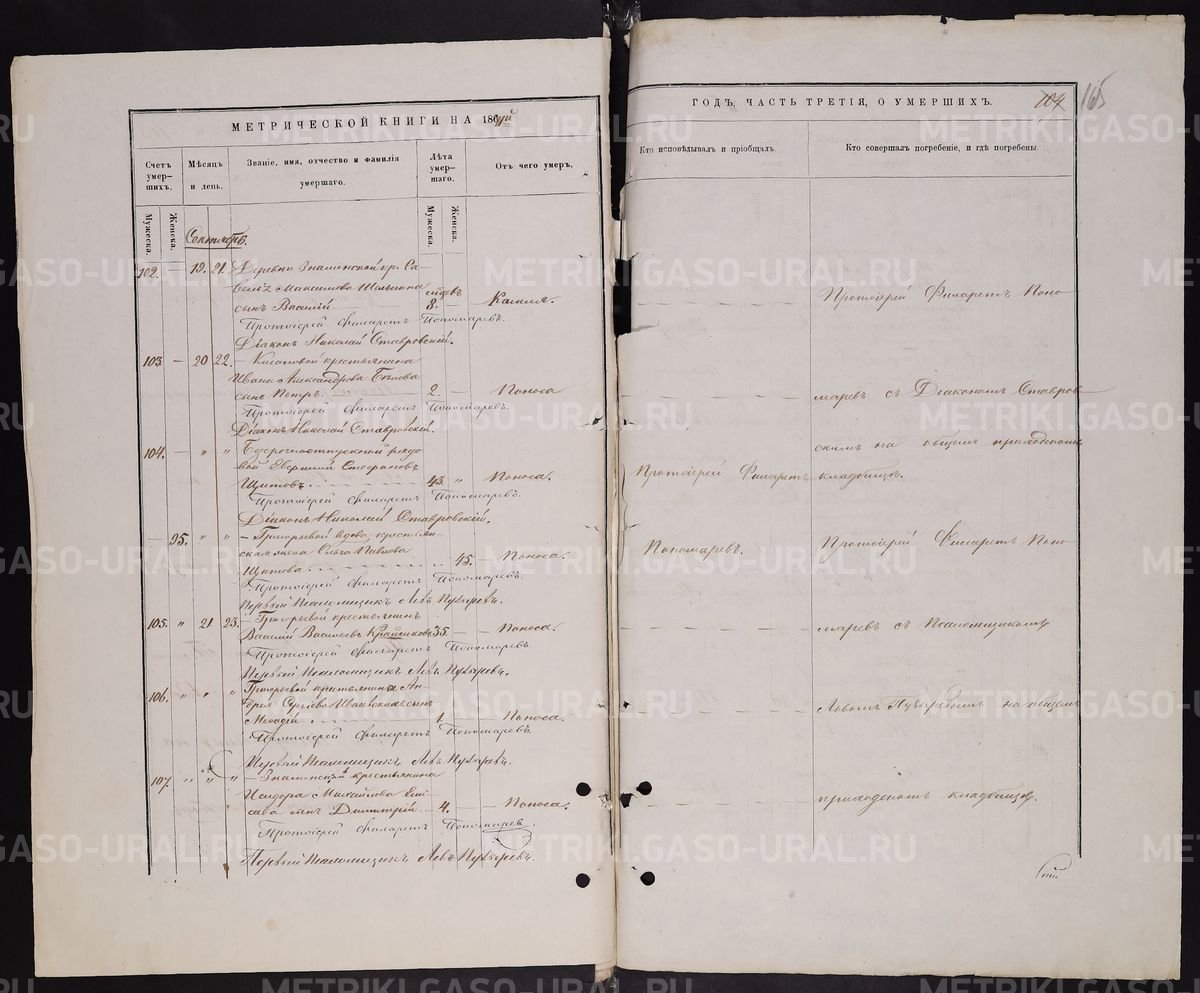 МЕТРИЧЕСКОЙ КНИГИ НА 186
Счетъ умер-шихъ.
Мѣсяцъ и день.
Званіе, имя, отчество и фамилія умершаго.
Лѣта умер-шаго.
Отъ чего умеръ.
Мужеска. Женска.
Мужеска. Женска.
Сентябрь.
102. — 19. 21. Деревни Знаменской кр. Са-
велія Максимова
сынъ Василій 8. — Кашля.
Протоіерей Филаретъ Пономаревъ.
Діаконъ Николай Ставровскій.
103 — 20 22. крестьянина
Ивана Александрова Бѣлова
сынъ Петръ. 2. — Поноса
Протоіерей Филаретъ Пономаревъ.
Діаконъ Николай Ставровскій.
104. — " " рядо-
вой Стефановъ
Щитовъ 43. " Поноса.
Протоіерей Филаретъ Пономаревъ.
Діаконъ Николай Ставровскій.
— 95. " " — Григорьевой вдова, крестьян-
ская жена Ольга Павлова
Щитова 45. — Поноса.
Протоіерей Филаретъ Пономаревъ.
Первый Псаломщикъ Левъ
105. " 21. 23. — Григорьевой крестьянинъ
Василій Васильевъ 35. — Поноса.
Протоіерей Филаретъ Пономаревъ.
Первый Псаломщикъ Левъ
106. " " " Григорьевой крестьянина Ан-
сынъ
1. — Поноса.
Протоіерей Филаретъ Пономаревъ.
Первый Псаломщикъ Левъ
107. " " " — Знаменской крестьянина
Исидора Михайлова Ели-
сынъ Димитрій 4. — Поноса.
Протоіерей Филаретъ Пономаревъ.
Первый Псаломщикъ Левъ
ГОДЪ, ЧАСТЬ ТРЕТІЯ, О УМЕРШИХЪ.
104 165
Кто исповѣдывалъ и пріобщалъ.
Кто совершалъ погребеніе, и гдѣ погребены.
Протоіерей Филаретъ Поно-
маревъ съ Діакономъ Ставров-
скимъ на общемъ приходскомъ
Протоіерей Филаретъ кладбищѣ.
Пономаревъ. Протоіерей Филаретъ Поно-
маревъ съ Псаломщикомъ
Львомъ на общемъ
приходскомъ кладбищѣ.
METRIKI.GASO-URAL.RU